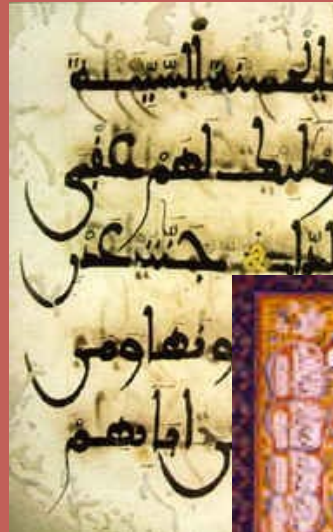 بالحسنة السيئة
ولئك لهم عقبى
لدار جنت عدن
ونها ومن
ابائهم